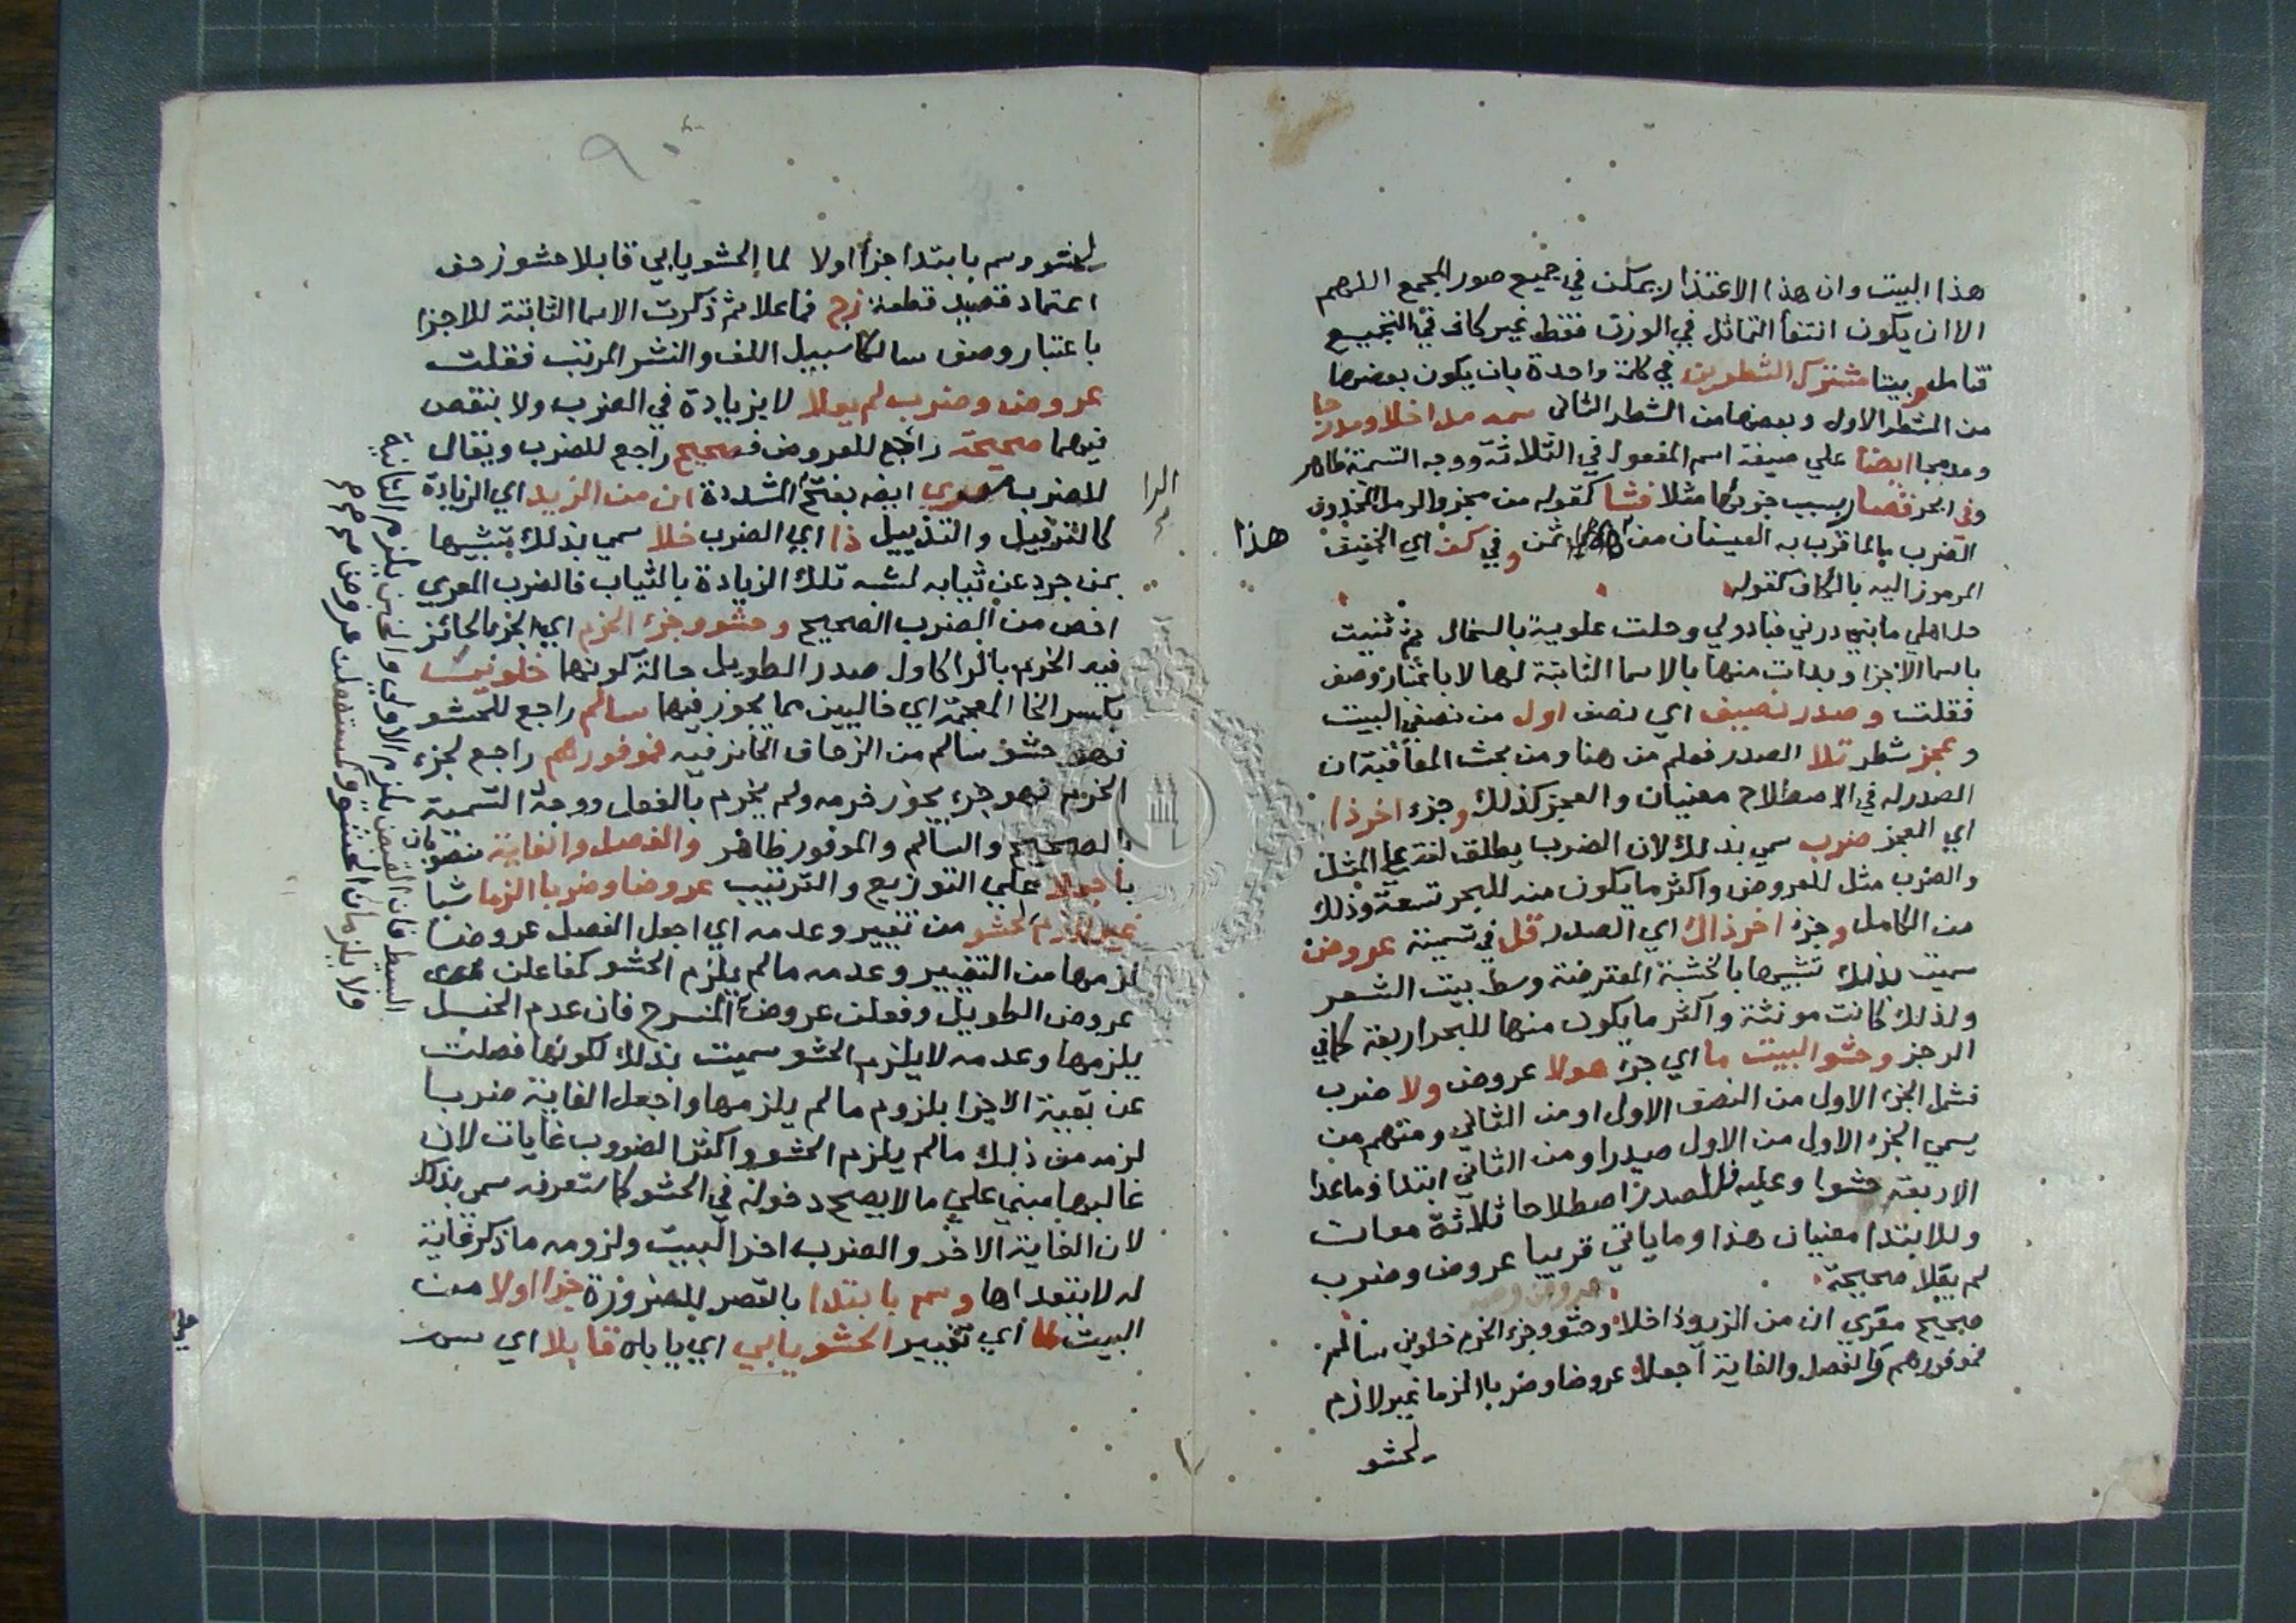 هذا البيت وان هذا الاعتذار يمكن في جميع صور المجمع اللهم
الا ان يكون انتفا التماثل في الوزن فقط غير كاف في التجميع
فتامل وبيتا مشترك الشطرين في كلمة واحدة بان يكون بعضها
من الشطر الاول وبعضها من الشطر الثاني سمه مداخلا ومدرجا
ومدمجا ايضا علي صيغة اسم المفعول في الثلاثة ووجه التسمية ظاهر
وفي ابحر قصار بسبب جزئها مثلا فشا كقوله من مجزو الرمل المحذوف
الضرب ما لما قرت به العينان من ثمن وفي كف اي الخفيف هذا
المرموز اليه بالكاف كقوله
حل اهلي ما بين درني فبادولي وحلت علوية بالسخال ثم ثنيت
باسما الاجزا وبدات منها بالاسما الثابتة لها لا باعتبار وصف
فقلت وصدر نصيف اي نصف اول من نصفي البيت
وعجز شطر تلا الصدر فعلم من هنا ومن بحث المعاقبة ان
الصدر له في الاصطلاح معنيان والعجز كذلك وجزء اخر ذا
اي العجز ضرب سمي بذلك لان الضرب يطلق لغة علي المثل
والضرب مثل للعروض واكثر ما يكون منه للبحر تسعة وذلك
من الكامل وجزء اخر ذاك اي الصدر قل في تسميته عروض
سميت بذلك تشبيها بالخشبة المعترضة وسط بيت الشعر
ولذلك كانت مونثة واكثر ما يكون منها للبحر اربعة كما في
الرجز وحشو البيت ما اي جزء هو لا عروض ولا ضرب
فشمل الجزء الاول من النصف الاول او من الثاني ومنهم من
يسمي الجزء الاول من الاول صدرا ومن الثاني ابتدا وما عدا
الاربعة حشوا وعليه فللصدر اصطلاحا ثلاثة معان
وللابتدا معنيان هذا وما ياتي قريبا عروض وضرب
لم يعلا صحيحة
صحيح معري ان من الزيد ذا خلا وحشو وجزء الخرم خلوين سالم
فموفورهم والفصل والغاية اجعلا عروضا وضربا الزما غير لازم
لحشو
لحشو وسم بابتدا جزأ اولا لما الحشو يابي قابلا حشو زحف
اعتماد قصيد قطعة زج فاعلا ثم ذكرت الاسما الثابتة للاجزا
باعتبار وصف سالكا سبيل اللف والنشر المرتب فقلت
عروض وضرب لم يعلا لا بزيادة في الضرب ولا بنقص
فيهما صحيحة راجع للعروض فصحيح راجع للضرب ويقال
للضرب معري ايضه بفتح الرا المشددة ان من الزيد اي الزيادة
كالترفيل والتذييل ذا اي الضرب خلا سمي بذلك تشبيها
بمن جرد عن ثيابه لشبه تلك الزيادة بالثياب فالضرب المعري
اخص من الضرب الصحيح وحشو وجزء الخرم اي الجزء الجائز
فيه الخرم بالرا كاول صدر الطويل حالة كونها خلوين
بكسر الخا المعجمة اي خاليين مما يجوز فيهما سالم راجع للحشو
فهو حشو سالم من الزحاف الجائز فيه فموفورهم راجع لجزء
الخرم فهو جزء يجوز خرمه ولم يخرم بالفعل ووجه التسمية
بالصحيح والسالم والموفور ظاهر والفصل والغاية منصوبان
باجعلا علي التوزيع والترتيب عروضا وضربا الزما شيا
غير لازم لحشو من تغيير وعدمه اي اجعل الفصل عروضا
لزمها من التغيير وعدمه ما لم يلزم الحشو كمفاعلن
عروض الطويل وفعلن عروض المنسرح فان عدم الخبل
يلزمها وعدمه لا يلزم الحشو سميت بذلك لكونها فصلت
عن بقية الاجزا بلزوم ما لم يلزمها واجعل الغاية ضربا
لزمه من ذلك ما لم يلزم الحشو واكثر الضروب غايات لان
غالبها مبني علي ما لا يصح دخوله في الحشو كما ستعرفه سمي بذلك
لان الغاية الاخر والضرب اخر البيت ولزومه ما ذكر غاية
له لا يتعداها وسم بابتدا بالقصر للضرورة جزا اولا من
البيت لما اي تغيير الحشو يابي اي ياباه قابلا اي
البسيط فان القبض يلزم الاولي والخبن يلزم الثانية
ولا يلزمان الحشو وكمستفعلن عروض